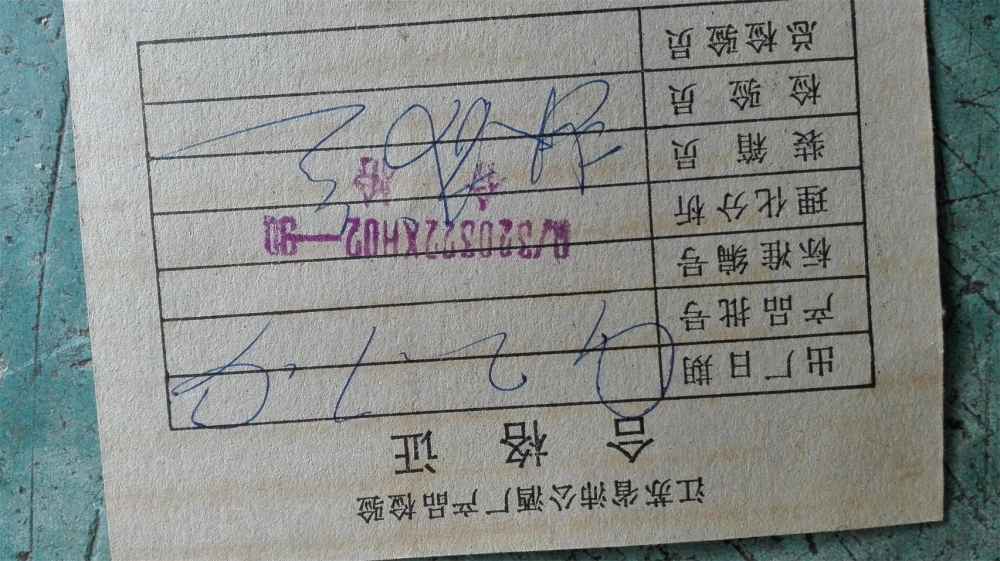 江苏省沛公酒厂产品检验
合格证
出厂日期
产品批号
标准编号 Q/320322XH02—90
理化分析 合格
装箱员
检验员
总检验员